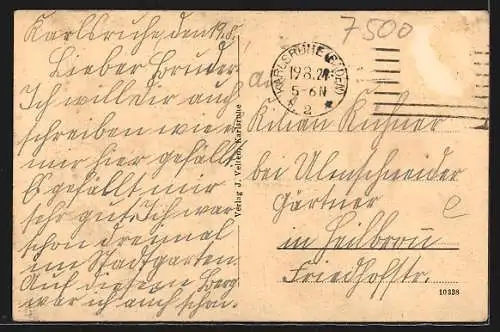 Karlsruhe, den 19.8.
Lieber Bruder
Ich will dir auch
schreiben wie e
mir hier gefällt
Es gefällt mir
sehr gut. Ich war
schon dreimal
im Stadtgarten
Auf diesem Berg
war ich auch schon.
Verlag J. Velten, Karlsruhe
7500
KARLSRUHE (BADEN)
19.8.24
5-6N
2
an
Kilian
bei Ulenschneider
Gärtner
in Heilbronn
Friedhofstr.
e
10338